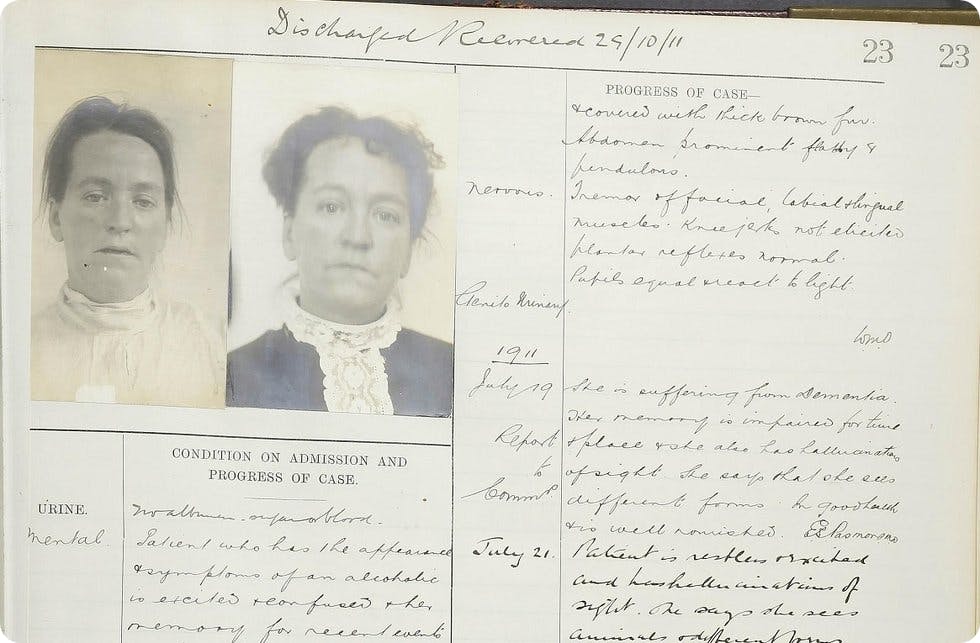 Discharged Recovered 29/10/11
23
23
CONDITION ON ADMISSION AND
PROGRESS OF CASE.
URINE.
No albumen - sugar or blood.
Mental.
Patient who has the appearance
& symptoms of an alcoholic
is excited & confused & her
memory for recent events
PROGRESS OF CASE—
& covered with thick brown fur.
Abdomen prominent &
pendulous.
Nervous.
Tremor of facial, labial & lingual
muscles. Knee jerks not elicited
plantar reflexes normal.
Pupils equal & react to light.
Genito Urinary.
1911
July 19
She is suffering from Dementia.
Her memory is impaired for time
Report
& place & she also has hallucinations
to
of sight. She says that she sees
Commrs.
different forms. In good health
& is well nourished.
July 21.
Patient is restless & excited
and has hallucinations of
sight. She says she sees
animals & different forms